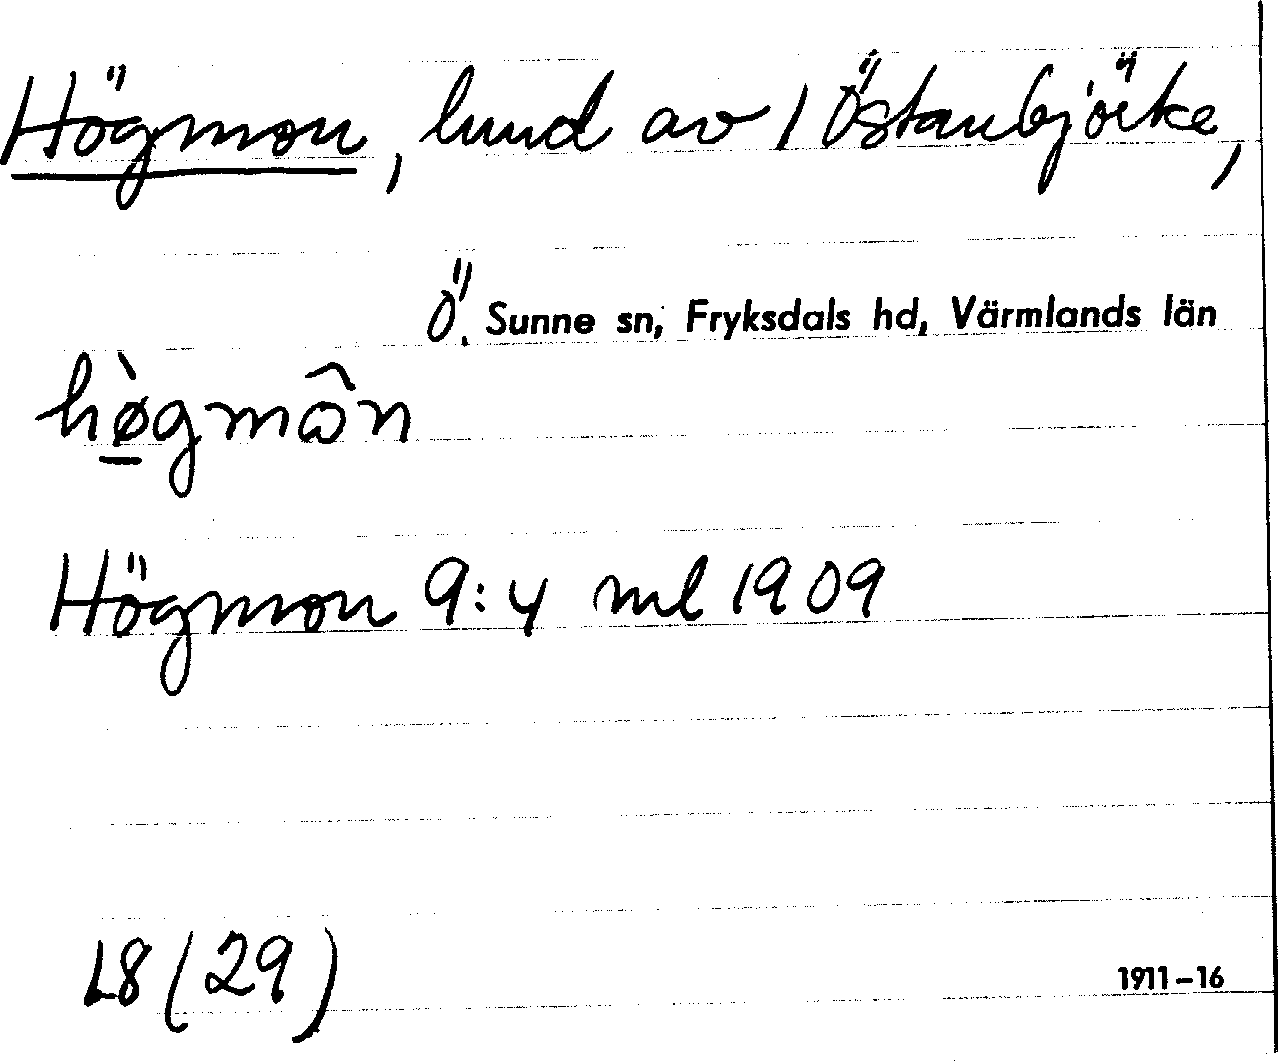 Högmon, lund av 1 Östanbjörke,
Ö. Sunne sn, Fryksdals hd, Värmlands län
hø̱̀gmôn
Högmon 9:4 ml 1909
L8 (29)
1911-16